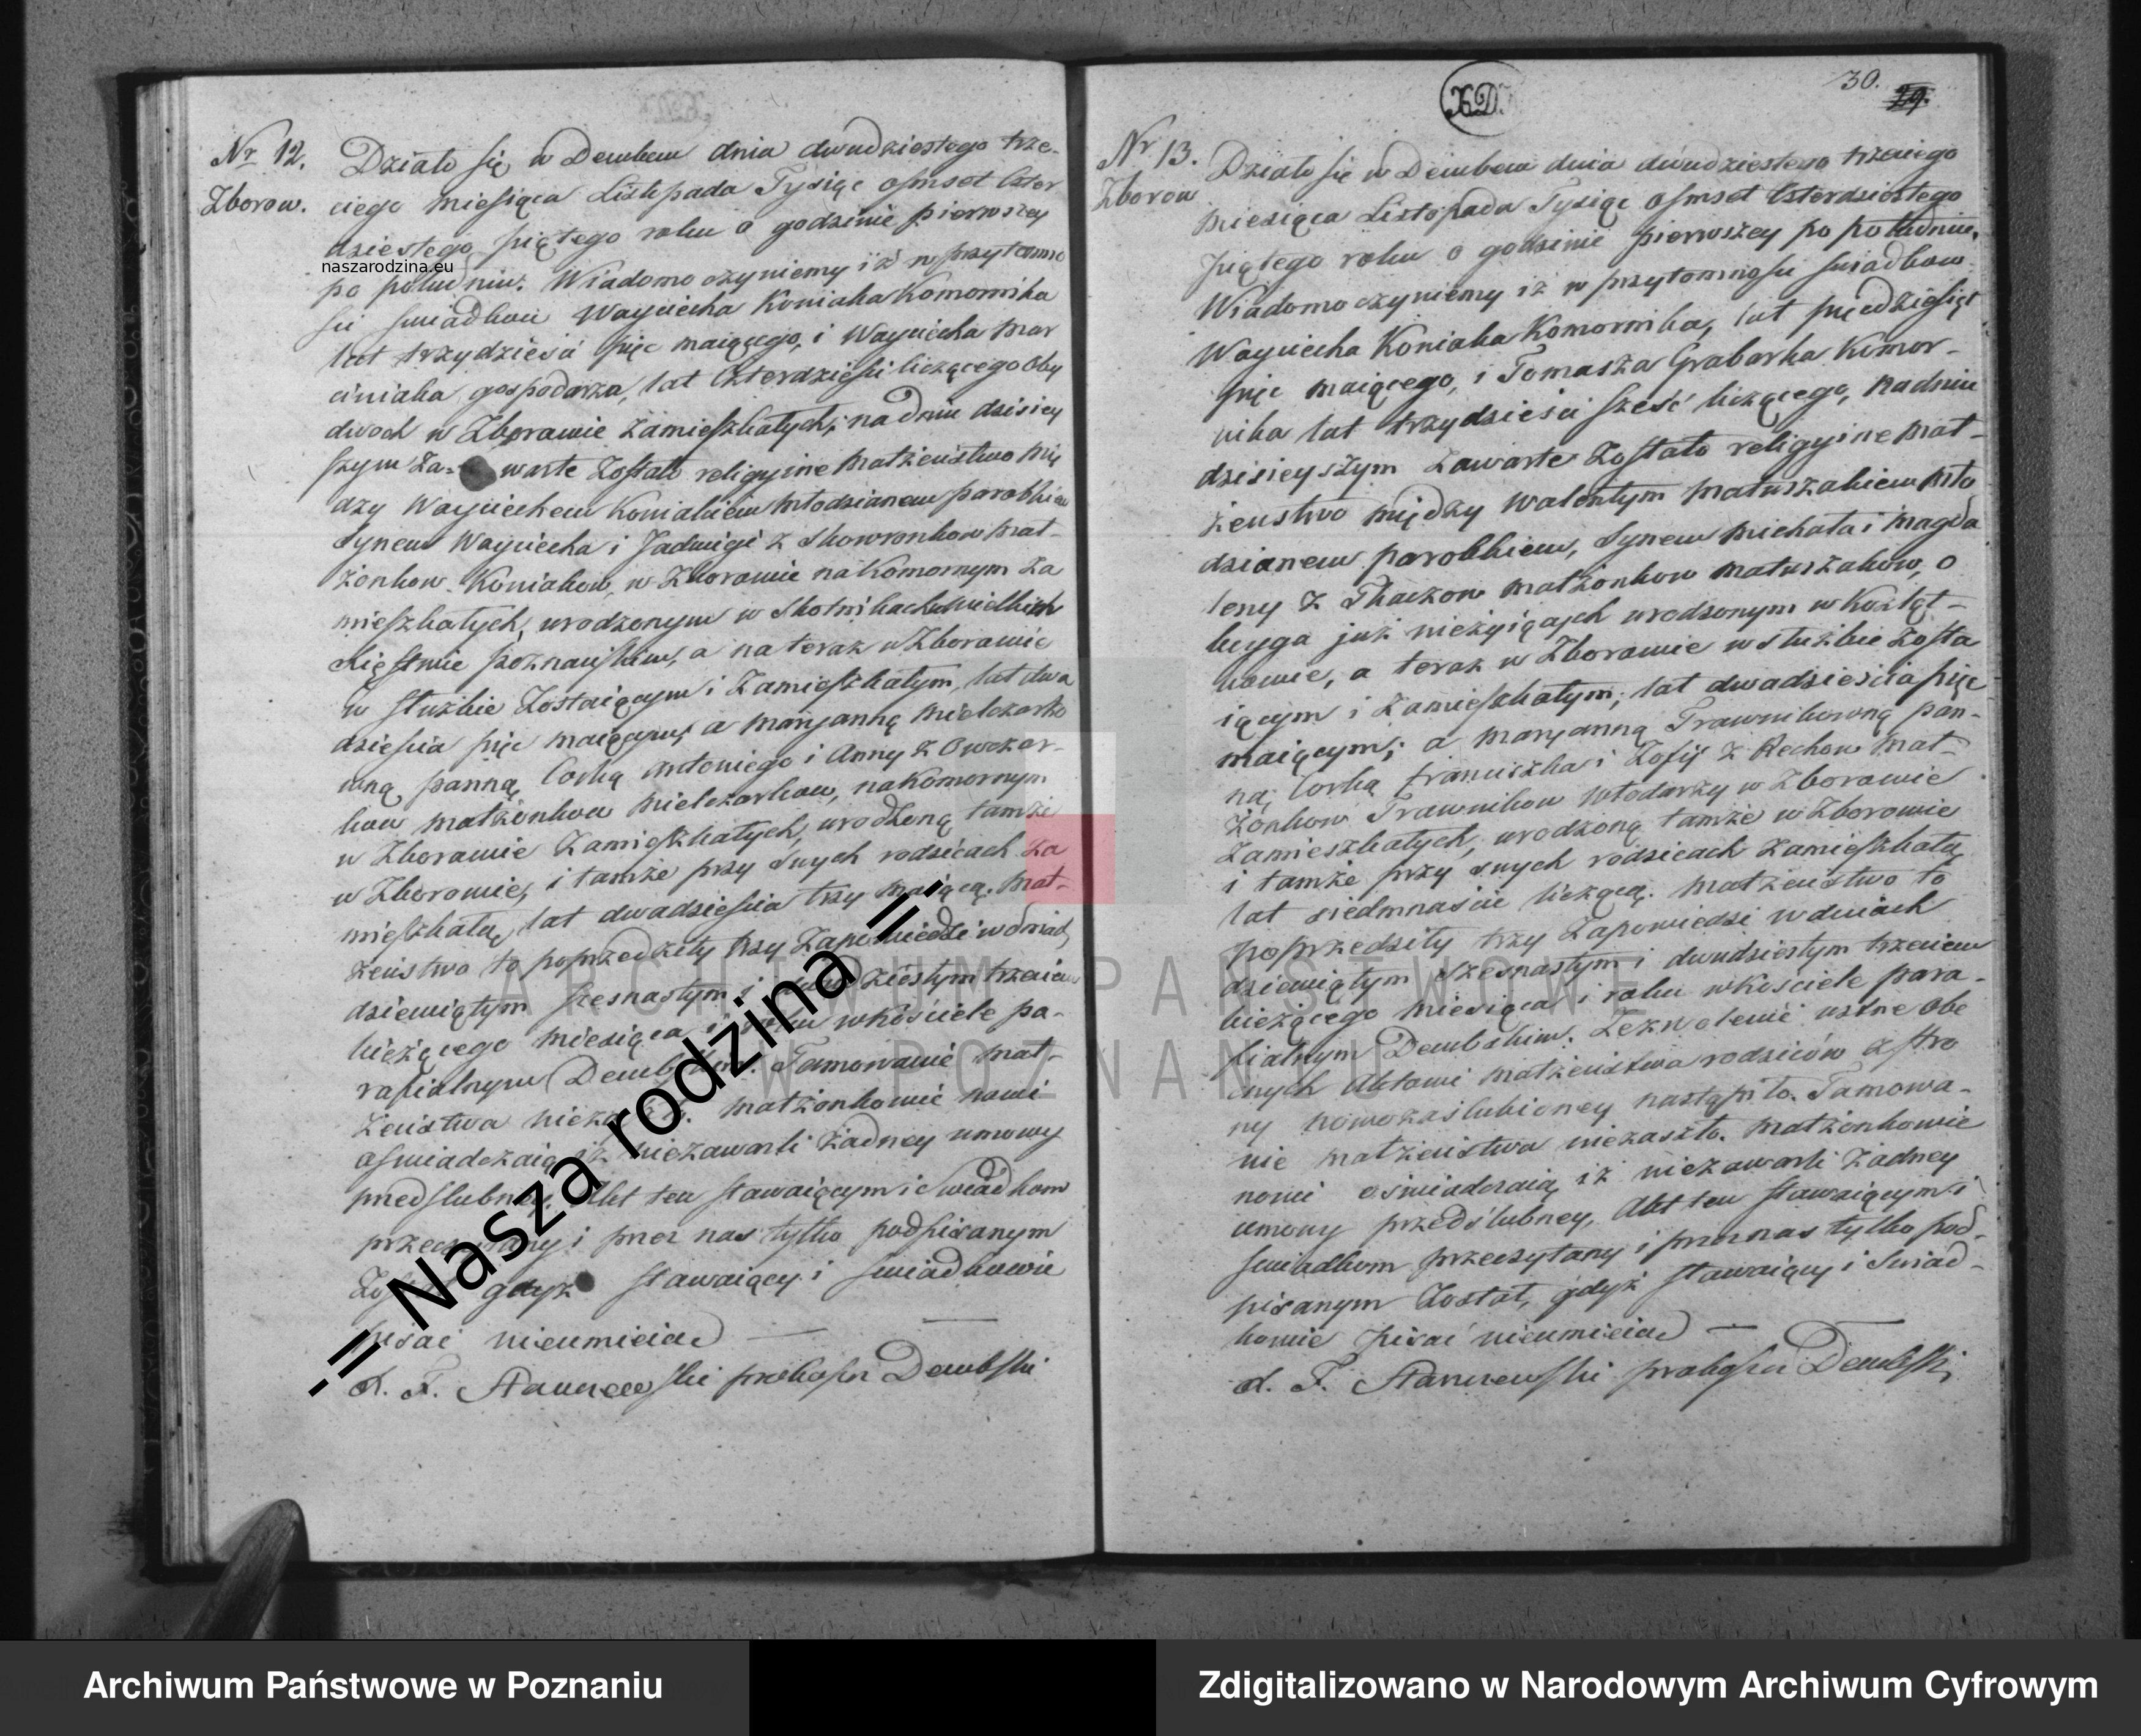 Nr 12.
Zborow.
Działo się w Dembem dnia dwudziestego trze-
ciego miesiąca Listopada Tysiąc osmset czter
dziestego piątego roku o godzinie pierwszey
po południu. Wiadomo czyniemy iż w przytomno
ści świadków Woyciecha Koniaka Komornika
lat trzydzieści pięc maiącego, i Woyciecha Mar
ciniaka gospodarza, lat czterdzieści liczącego oby
dwoch w Zborowie zamieszkałych; na dniu dzisiey
szym Za- warte Zostało religyine Małżeństwo Mię
dzy Woyciechem Koniakiem Młodzianem parobkiem
Synem Woyciecha i Jadwigi z Skowronkow Mał-
żonkow Koniakow, w Zborowie na Komornym Za
mieszkałych, urodzonym w Skotnikach Wielkich
Xięstwie poznańskim, a na teraz w Zborowie
w służbie Zostaiącym i Zamieszkałym, lat dwa
dzieścia pięc maiącym; a Maryanną Mielczarkó
wną panną, Corką Antoniego i Anny z Owczar-
kow małżonkow Mielczarkow, na Komornym
w Zborowie Zamieszkałych, urodzoną tamże
w Zborowie, i tamże przy swych rodzicach Za
mieszkałą, lat dwadzieścia trzy maiącą. Mał-
żeństwo to poprzedziły trzy Zapowiedzi w dniach
dziewiątym szesnastym i dwudziestym trzecim
bieżącego miesiąca i roku w kościele pa-
rafialnym Dembskim. Tamowanie Mał-
żeństwa niezaszło. Małżonkowie nowi
oświadczaią iż niezawarli żadney umowy
przedślubney. Akt ten stawaiącym i Swiadkom
przeczytany i przez nas tylko podpisanym
Został gdyż stawaiący i świadkowie
pisać nieumieią
X. F. Stanczewski proboszcz Dembski
30.
29.
KD.
Nr 13.
Zborow
Działo się w Dembem dnia dwudziestego trzeciego
miesiąca Listopada Tysiąc osmset czterdziestego
piątego roku o godzinie pierwszey po południu.
Wiadomo czyniemy iż w przytomności świadkow
Woyciecha Koniaka Komornika, lat pięćdziesiąt
pięc maiącego, i Tomasza Grabarka Komor-
nika lat trzydzieści sześć liczącego, na dniu
dzisieyszym Zawarte Zostało religyine Mał-
żeństwo między Walentym Matuszakiem Mło
dzianem parobkiem, Synem Michała i Magda
leny z Tkaczow małżonkow Matuszakow, o
boyga już nieżyiących urodzonym w Koźląt-
kowie, a teraz w Zborowie w służbie Zosta
iącym i Zamieszkałym; lat dwadzieścia pięc
maiącym; a Maryanną Trawnikowną pan-
ną; Corką Franciszka i Zofij z Rechow Mał-
żonkow Trawnikow włodarzy w Zborowie
Zamieszkałych, urodzoną tamże w Zborowie
i tamże przy swych rodzicach Zamieszkałą
lat siedmnaście liczącą. Małżeństwo to
poprzedziły trzy Zapowiedzi w dniach
dziewiątym szesnastym i dwudziestym trzecim
bieżącego miesiąca i roku w kościele para-
fialnym Dembskim. Zezwolenie ustne obe
cnych Aktowi małżeństwa rodziców z stro
ny nowozaślubioney nastąpiło. Tamowa-
nie małżeństwa niezaszło. Małżonkowie
nowi oświadczaią iż niezawarli żadney
umowy przedślubney, Akt ten stawaiącym i
świadkom przeczytany i przez nas tylko pod-
pisanym Został, gdyż stawaiący i Swiad-
kowie pisać nieumieią
X. F. Stanczewski proboszcz Dembski
naszarodzina.eu
.:= Nasza rodzina =:.
ARCHIWUM PAŃSTWOWE
W POZNANIU
Archiwum Państwowe w Poznaniu
Zdigitalizowano w Narodowym Archiwum Cyfrowym